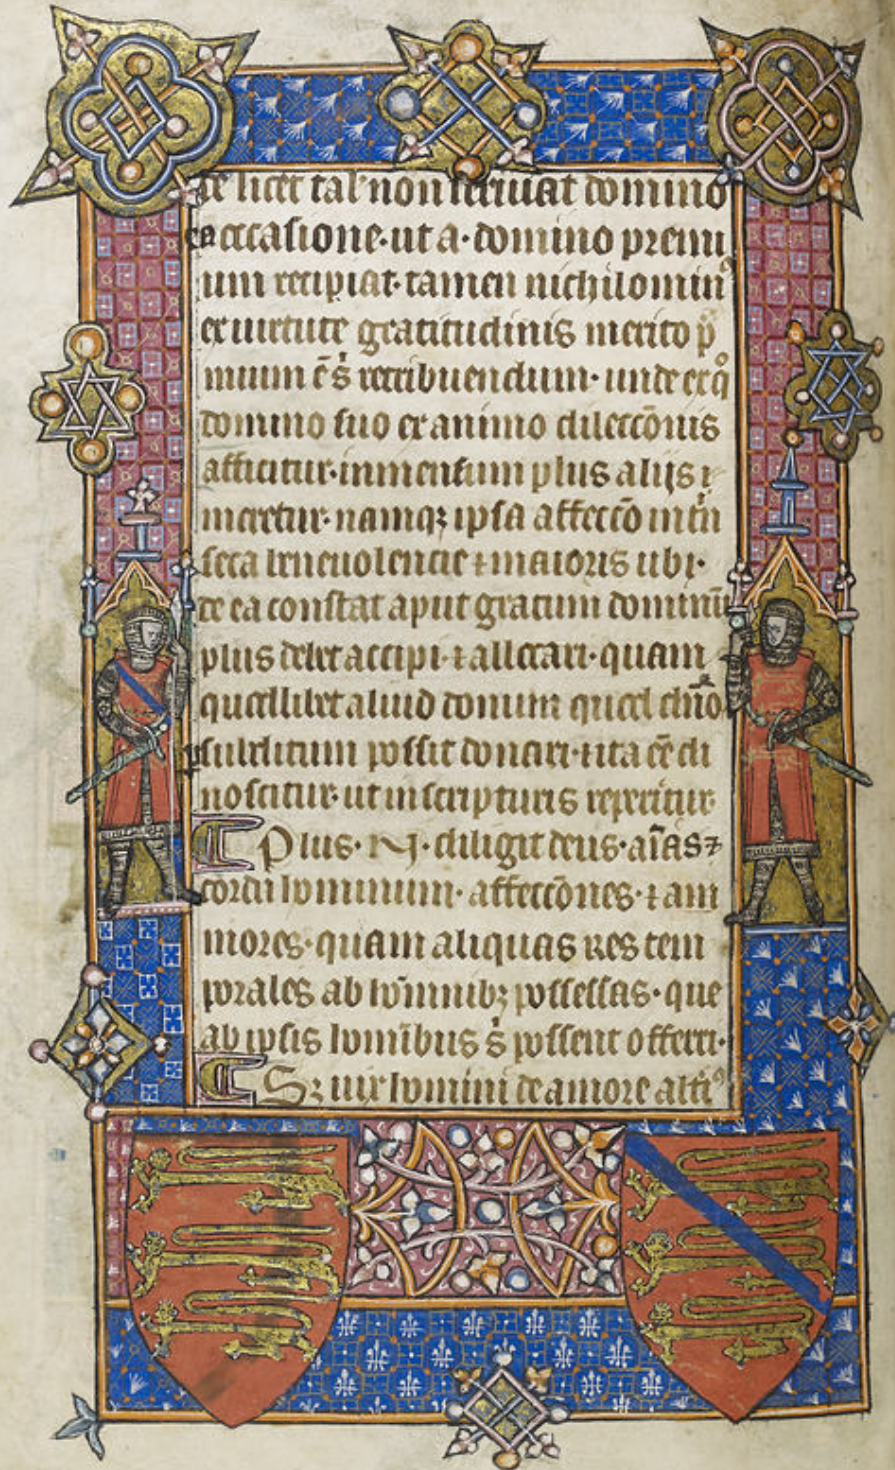 te licet tal' non seruiat domino
ea occasione · ut a · domino premi
um recipiat · tamen nichilomin⁹
ex uirtute gratitudinis merito p̄
mium ē s̉ retribuendum · unde ex q̊
domino suo ex animo dileccōnis
afficitur · inmensum plus alijs ⁊
meretur · namqꝫ ipsa affeccō int̉n
seca beneuolencie ⁊ maioris ubi ·
de ea constat aput gratum dominū
plus debet accipi · ⁊ allectari · quam
quodlibet aliud donum quod
p subditum possit donari · ⁊ ita ēē di
noscitur · ut in scripturis reperitur
Plus · N · diligit deus · aīas ⁊
cordū hominum · affeccōnes · ⁊ am
mores · quam aliquas res tem
porales ab hōminibꝫ possessas · que
ab ipsis homībus s̉ possent offerri ·
Sꝫ uix homini de amore alt̉i⁹